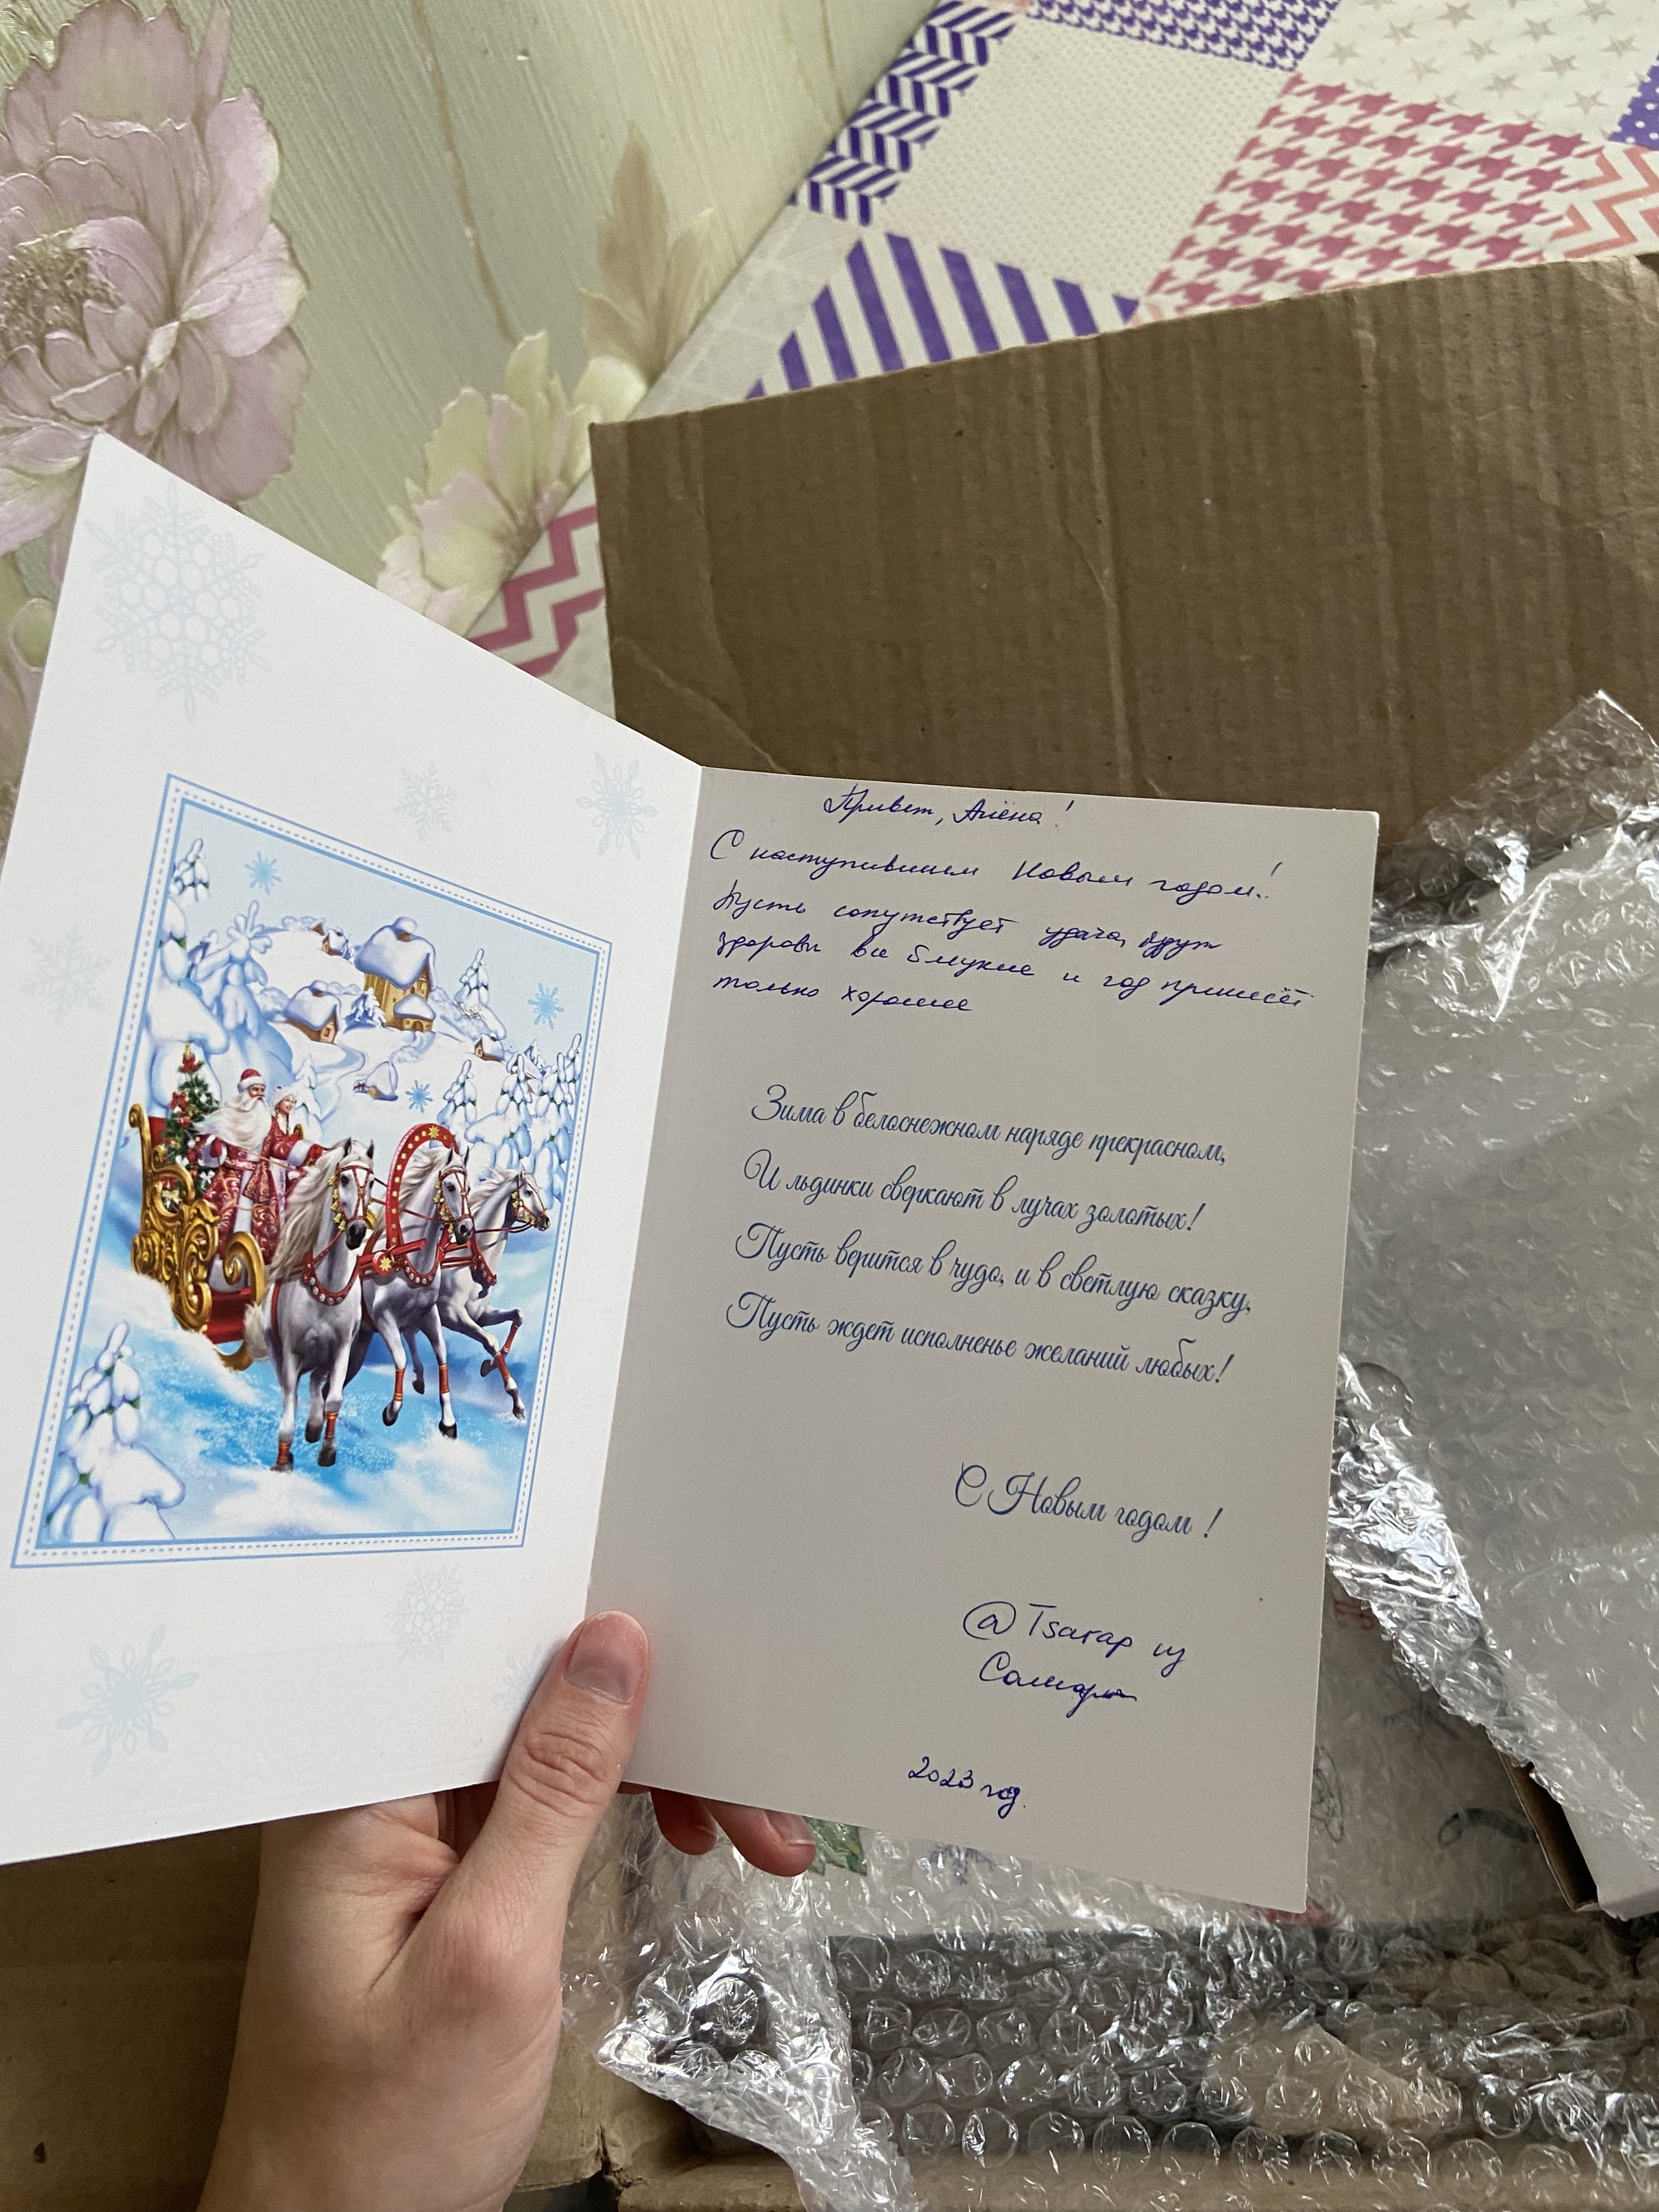 Привет, Алёна!
С наступившим Новым годом!
Пусть сопутствует удача, будут
здоровы все близкие и год принесёт
только хорошее
Зима в белоснежном наряде прекрасном,
И льдинки сверкают в лучах золотых!
Пусть верится в чудо, и в светлую сказку,
Пусть ждет исполненье желаний любых!
С Новым годом!
@Tsarap из
Самары
2023 год.